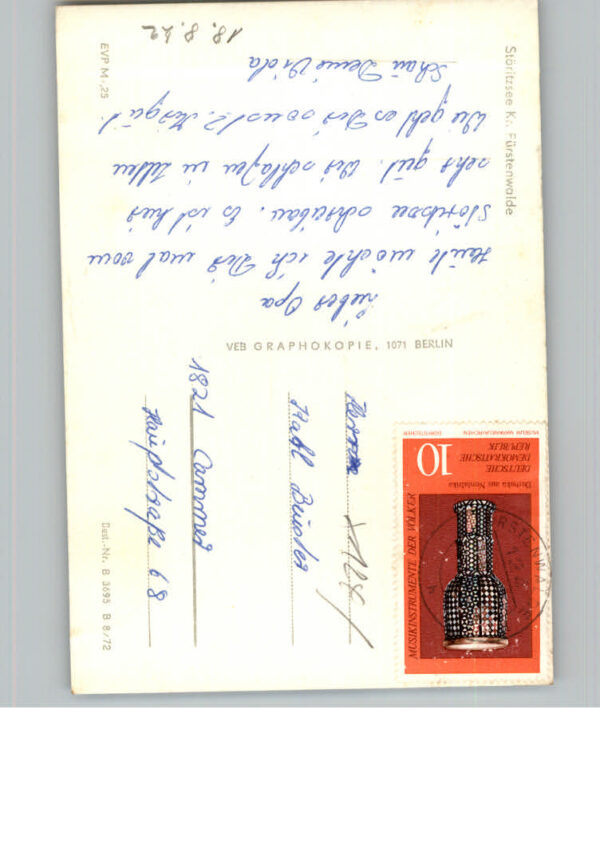 Störitzsee Kr. Fürstenwalde
Lieber Opa
Heute möchte ich Dir mal vom
Störitzsee schreiben. Es ist hier
sehr gut. Wir schlafen in Zelten
Wie geht es Dir sonst? Mir gut.
Schau Deine Viola
18.8.72
EVP M -,25
VEB GRAPHOKOPIE, 1071 BERLIN
Herrn
Karl Binder
1821 Cammer
Hauptstraße 68
Best.-Nr. B 3695 B 8/72
MUSIKINSTRUMENTE DER VÖLKER
Darbuka aus Nordafrika
DEUTSCHE
DEMOKRATISCHE
REPUBLIK
10
MUSEUM MARKNEUKIRCHEN